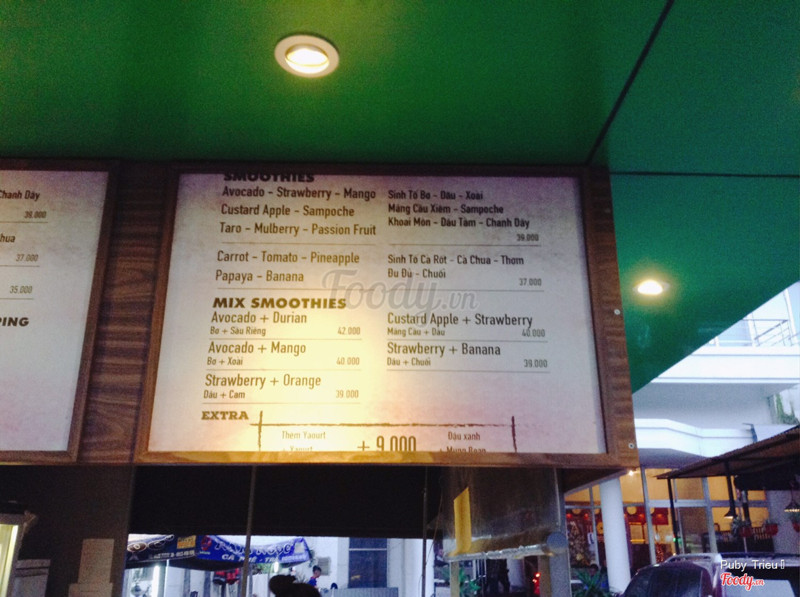 Chanh Dây
38.000
hua
37.000
35.000
PING
SMOOTHIES
Avocado - Strawberry - Mango
Sinh Tố Bơ - Dâu - Xoài
Custard Apple - Sampoche
Mãng Cầu Xiêm - Sampoche
Taro - Mulberry - Passion Fruit
Khoai Môn - Dâu Tằm - Chanh Dây
39.000
Carrot - Tomato - Pineapple
Sinh Tố Cà Rốt - Cà Chua - Thơm
Papaya - Banana
Đu Đủ - Chuối
37.000
Foody.vn
MIX SMOOTHIES
Avocado + Durian
Bơ + Sầu Riêng
42.000
Custard Apple + Strawberry
Mãng Cầu + Dâu
40.000
Avocado + Mango
Bơ + Xoài
40.000
Strawberry + Banana
Dâu + Chuối
39.000
Strawberry + Orange
Dâu + Cam
39.000
EXTRA
Thêm Yaourt
+ Yaourt
+ 9.000
Đậu xanh
+ Mung Bean
Puby Trieu
Foody.vn